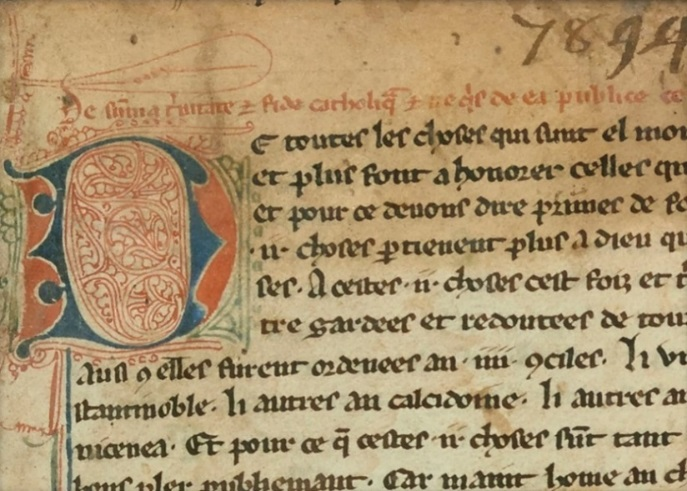 7844
De sũma t̃nitate ⁊ fide catholiq̃ ⁊ ne q̃s de ea publice
DE toutes les choses qui sunt el mon
et plus font a honorer celles qu
et pour ce deuons dire primes de
.ii. choses ꝑtienent plus a dieu qu
ses. A cestes .ii. choses cest foiz et
tre gardees et redoutees de tou
Ausi ꝯ elles furent ordenees an .iiii. ꝯciles. li
stantinoble. li autres an calcidome. li autres an
nicenea. Et pour ce q̃ cestes .ii. choses sũt tant
Car maint home au